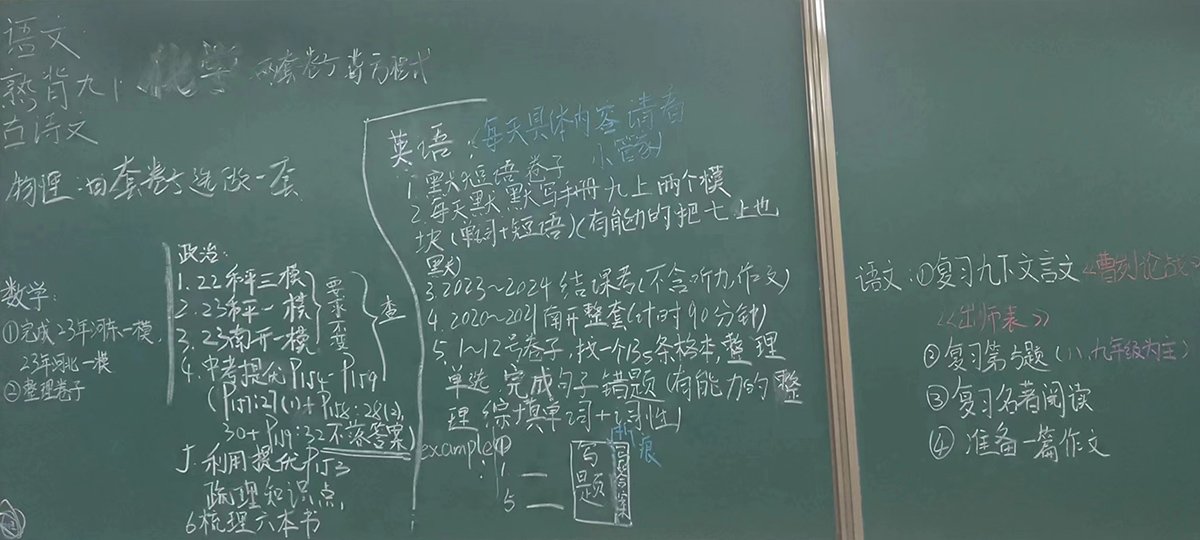 语文:
熟背九上
古诗文
化学 两套卷子 背方程式
物理:四套卷子选做一套
数学:
①完成23年河东一模,
23年河北一模
②整理卷子
政治:
1.22和平三模
2.23和平一模
3.23南开一模
要求不变
查
4.中考提优P154-P159
(P157:27(1)+P158:28(2),
30+P159:32不落答案)
5.利用提优P153
疏理知识点,
6梳理六本书
英语:(每天具体内容请看
小管家)
1.默短语卷子
2.每天默默写手册九上两个模
块(单词+短语)(有能力的把七上也
默)
3.2023~2024结课考(不含听力,作文)
4.2020~2021南开整套(计时90分钟)
5.1~12号卷子,找一个B5条格本,整理
单选,完成句子错题(有能力的整
理 综填单词+词性)
example:
1
5
写题
写答案
折痕
语文:①复习九下文言文《曹刿论战》
《出师表》
②复习第5题(八、九年级为主)
③复习名著阅读
④ 准备一篇作文